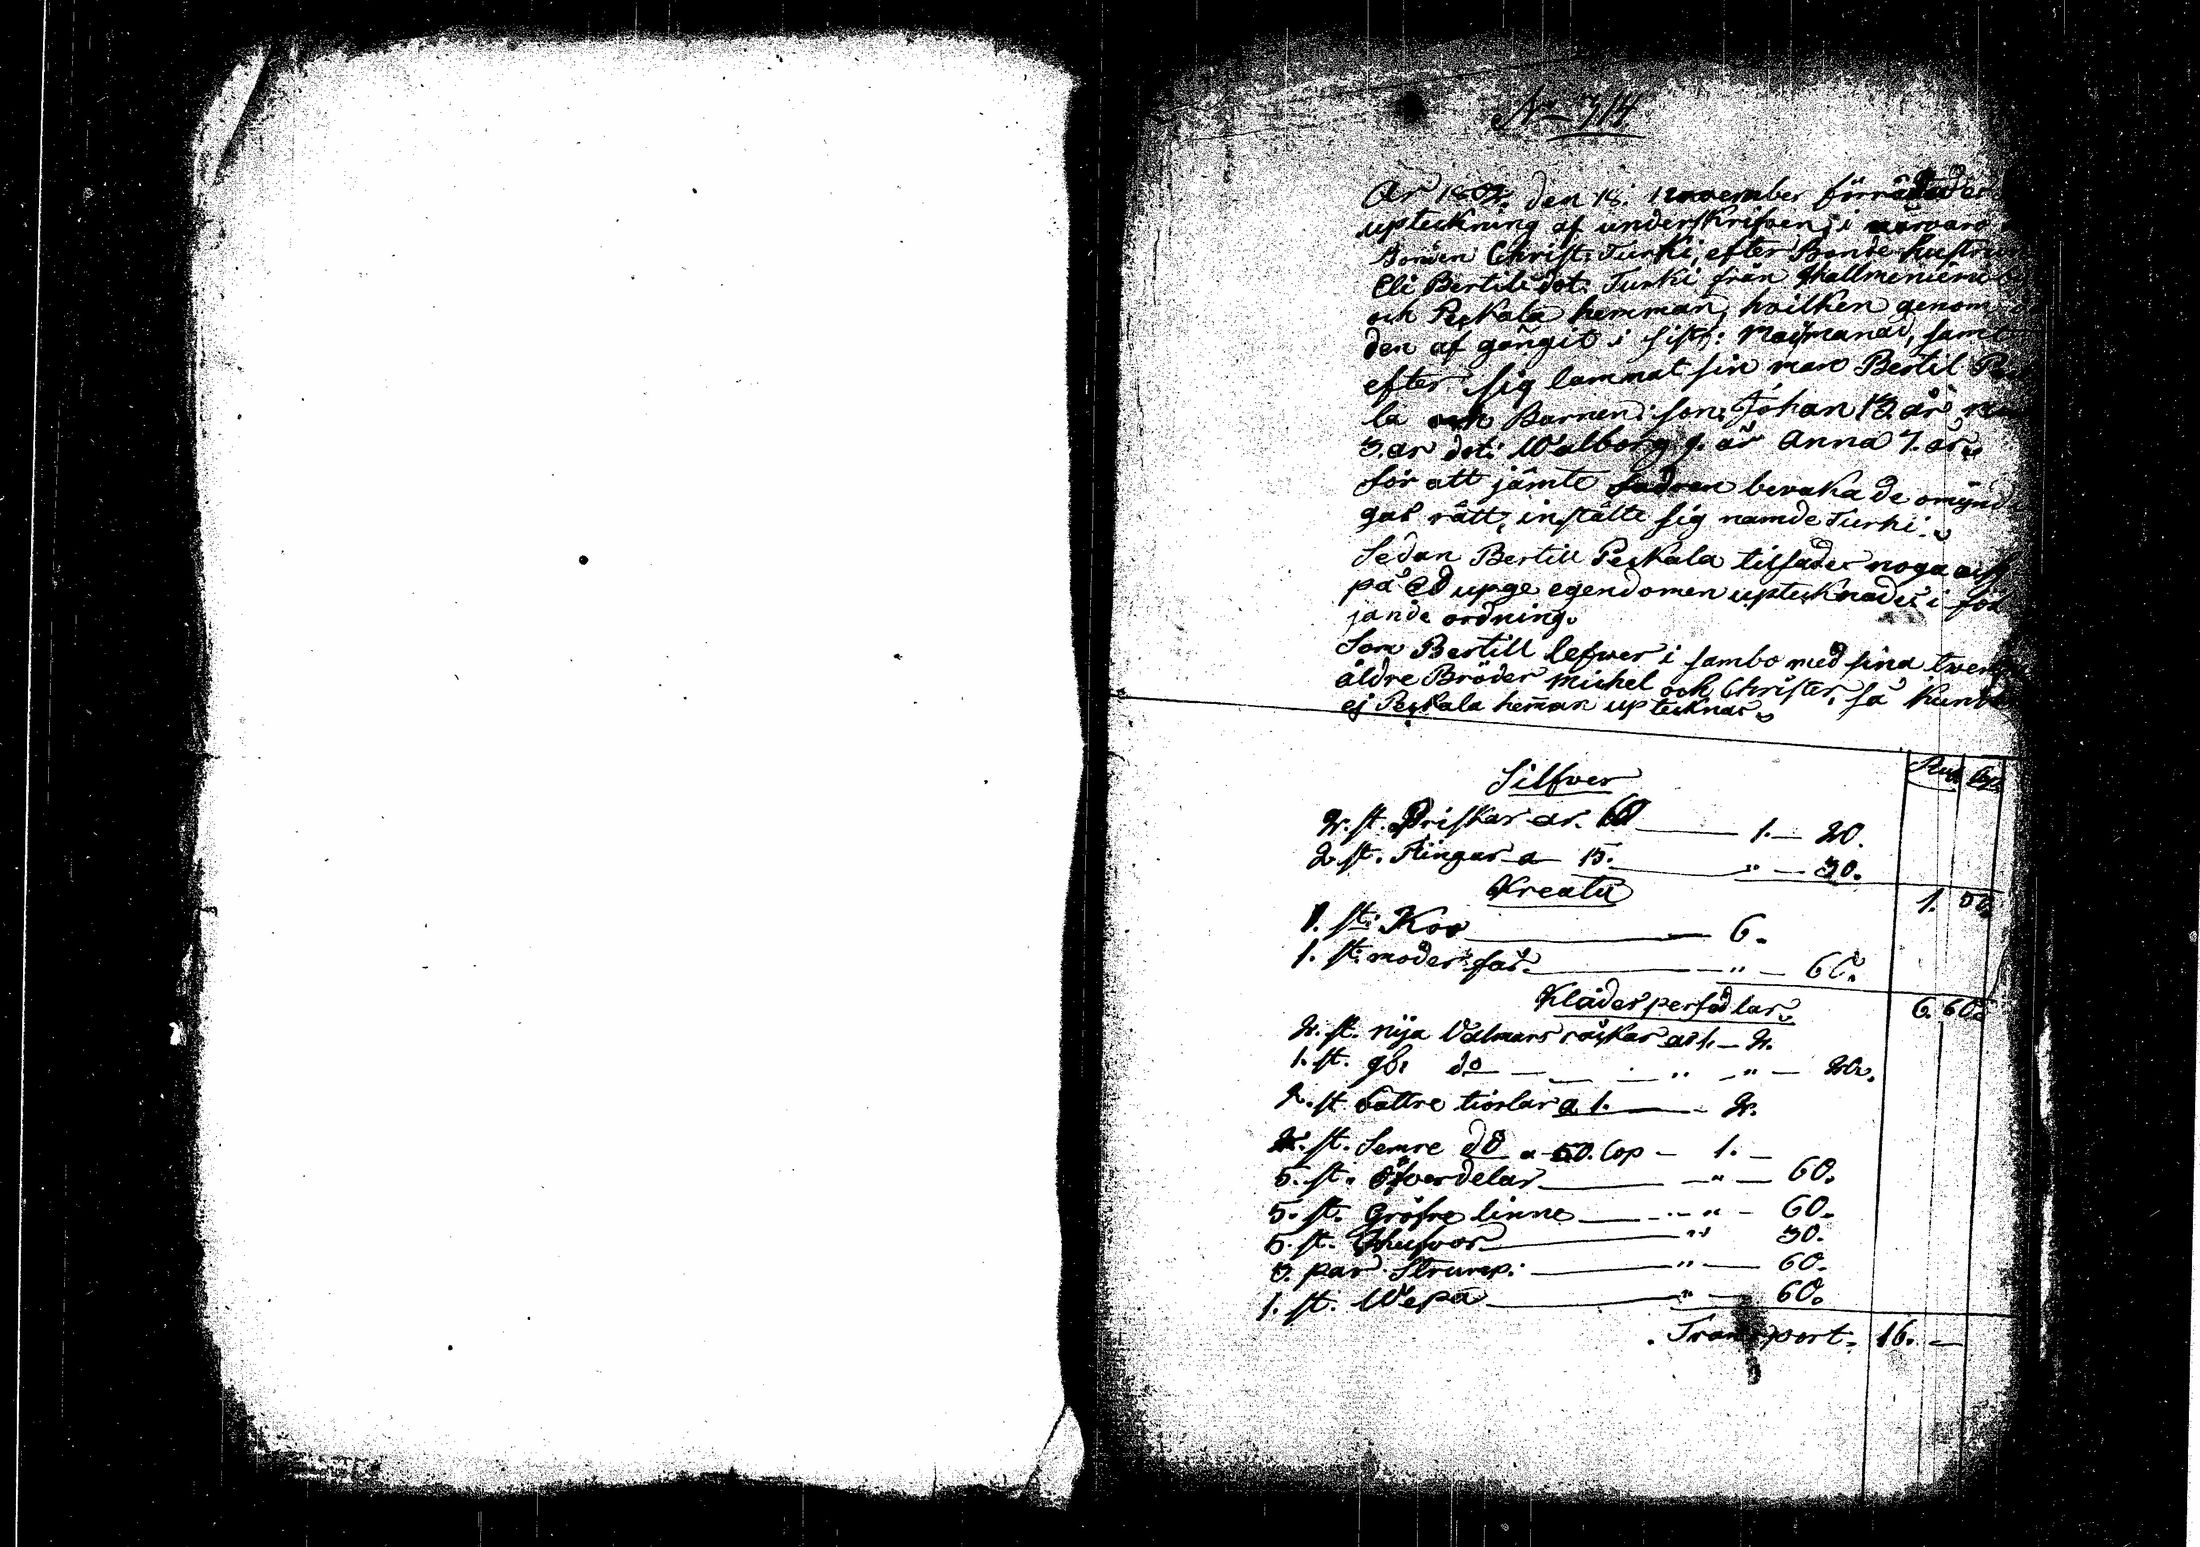 No 314.
År 18 den 18. november förrättades
upteckning af underskrifven, i närvaro
Bonden Christ: Turki, efter Bonde hustrun
Eli Bertils dot: Turki från
och Peskala hemman, hvilken genom
den af gångit i sist: Maÿmanad, samt
efter sig lämnat sin man Bertil Pes
la och Barnen: son: Johan 13. år
3. år dot: Walborg 9. år Anna 7. år
för att jämte fadren bevaka de omÿndi
gas rätt, instälte sig namde Turki.
Sedan Bertill Peskala tilsades noga
på Ed upge egendomen uptecknades i föl
jande ordning.
Som Bertill lefwer i sambo med sina twenne
äldre Bröder Michel och Christer, så kunde
ej Peskala hem̄an uptecknas
Rub. Cop.
Silfwer
2. st. Briskar ar. 60 1. — 20.
2 st. Ringar a 15. " — 30.
1. 50.
Kreatu
1. st: Koo 6.
1. st: moder får. " — 60.
6. 60.
Kläder persedlar
2. st. nÿa Valmars råckar a 1. — 2.
1. st. gl: do " — " — 20.
2. st. bättre tiörlar a 1. 2.
2. st. Semre do a 50. Cop — 1. —
5. st. öfverdelar " — 60.
5. st. Gröfre linne " — 60.
5. st. Hufvor " 30.
3. par Strump: " — 60.
1. st. Wepa " — 60.
Transport. 16. —